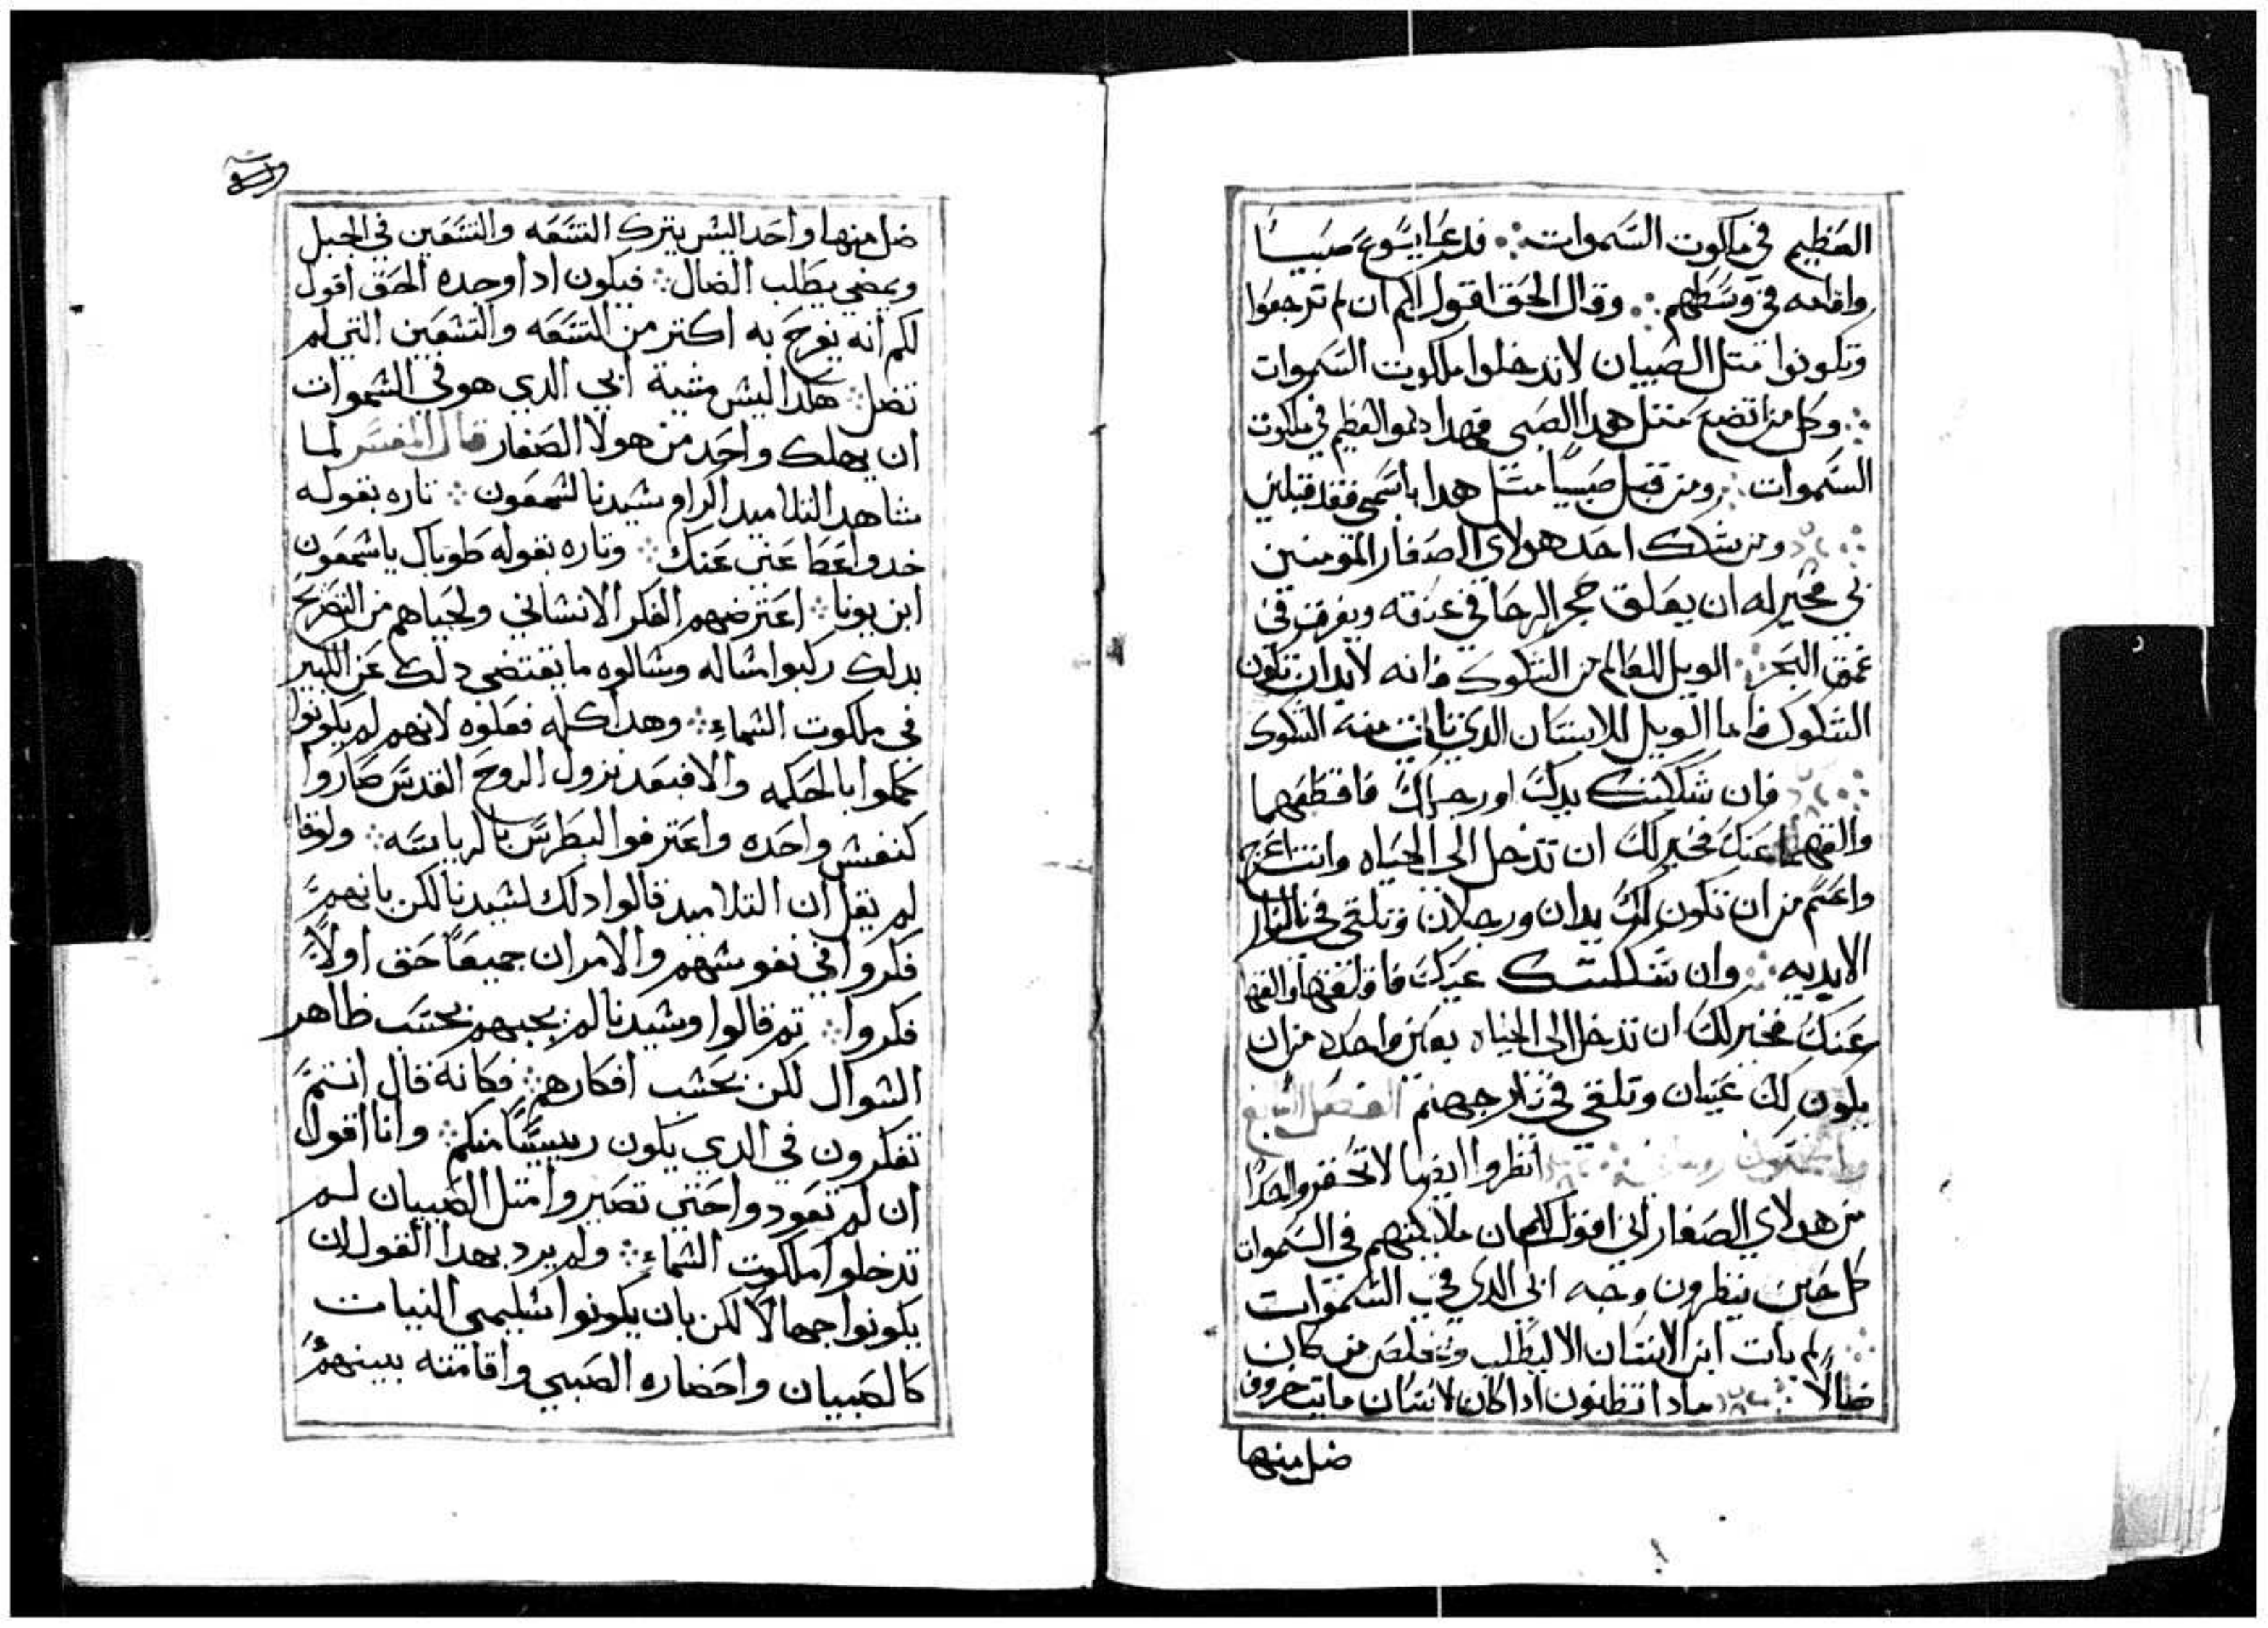 العظيم في ملكوت السموات ؞ فدعا يسوع صبيًا
واقامه في وسطهم ؞ وقال الحق اقول لكم ان لم ترجعوا
وتكونوا متل الصبيان لا تدخلوا ملكوت السموات
؞ وكل من اتضع متل هدا الصبي فهدا هو العظيم في ملكوت
السموات ؞ ومن قبل صبيًا متل هدا باسمي فقد قبلني
؞ ومن شكك احد هولاي الصغار المومنين
بي فخير له ان يعلق حجر الرحا في عنقه ويغرق في
عمق البحر ؞ الويل للعالم من الشكوك فانه لابد ان تكون
الشكوك فاما الويل للانسان الدي تاتي منه الشكوك
؞ فان شككتك يدك او رجلك فاقطعهما
والقهما عنك فخير لك ان تدخل الى الحياه وانت اعرج
واعسم من ان تكون لك يدان ورجلان وتلقى في النار
الابديه ؞ وان شككتك عينك فاقلعها والقها
عنك فخير لك ان تدخل الى الحياه بعين واحده من ان
يكون لك عينان وتلقى في نار جهنم الفصل السابع
انظروا ايضا لا تحقروا احدًا
من هولاي الصغار اني اقول لكم ان ملايكتهم في السموات
كل حين ينظرون وجه ابي الدي في السموات
؞ لم يات ابن الانسان الا ليطلب ويخلص من كان
ضالًا ؞ مادا تظنون ادا كان لانسان مايت خروف
ضل منها
ضل منها واحد اليس يترك التسعه والتسعين في الجبل
ويمضي يطلب الضال ؞ فيكون ادا وجده الحق اقول
لكم انه يفرح به اكتر من التسعه والتسعين التي لم
تضل ؞ هكدا ليس مشية ابي الدي هو في السموات
ان يهلك واحد من هولا الصغار قال المفسر لما
شاهد التلاميد اكرام سيدنا لشمعون ؞ تاره بقوله
خد واعطا عني عنك ؞ وتاره بقوله طوباك يا شمعون
ابن يونا ؞ اعترضهم الفكر الانساني ولحياهم من التصريح
بدلك ركبوا مساله وسالوه ما يقتضي دلك عن الكبير
في ملكوت السماء ؞ وهدا كله فعلوه لانهم لم يكونوا
كملوا بالحكمه والا فبعد نزول الروح القدس صاروا
كنفس واحده واعترفوا لبطرس بالرياسه ؞ ولوقا
لم يقل ان التلاميد قالوا دلك لسيدنا لكن بانهم
فكروا في نفوسهم والامران جميعًا حق اولًا
فكروا ؞ تم قالوا وسيدنا لم يجبهم بحسب ظاهر
السوال لكن بحسب افكارهم ؞ فكانه قال انتم
تفكرون في الدي يكون رييسًا منكم ؞ وانا اقول
ان لم تعودوا حتى تصيروا متل الصبيان لم
تدخلوا ملكوت السماء ؞ ولم يرد بهدا القول ان
يكونوا جهالًا لكن بان يكونوا سليمي النيات
كالصبيان واحضاره الصبي واقامته بينهم